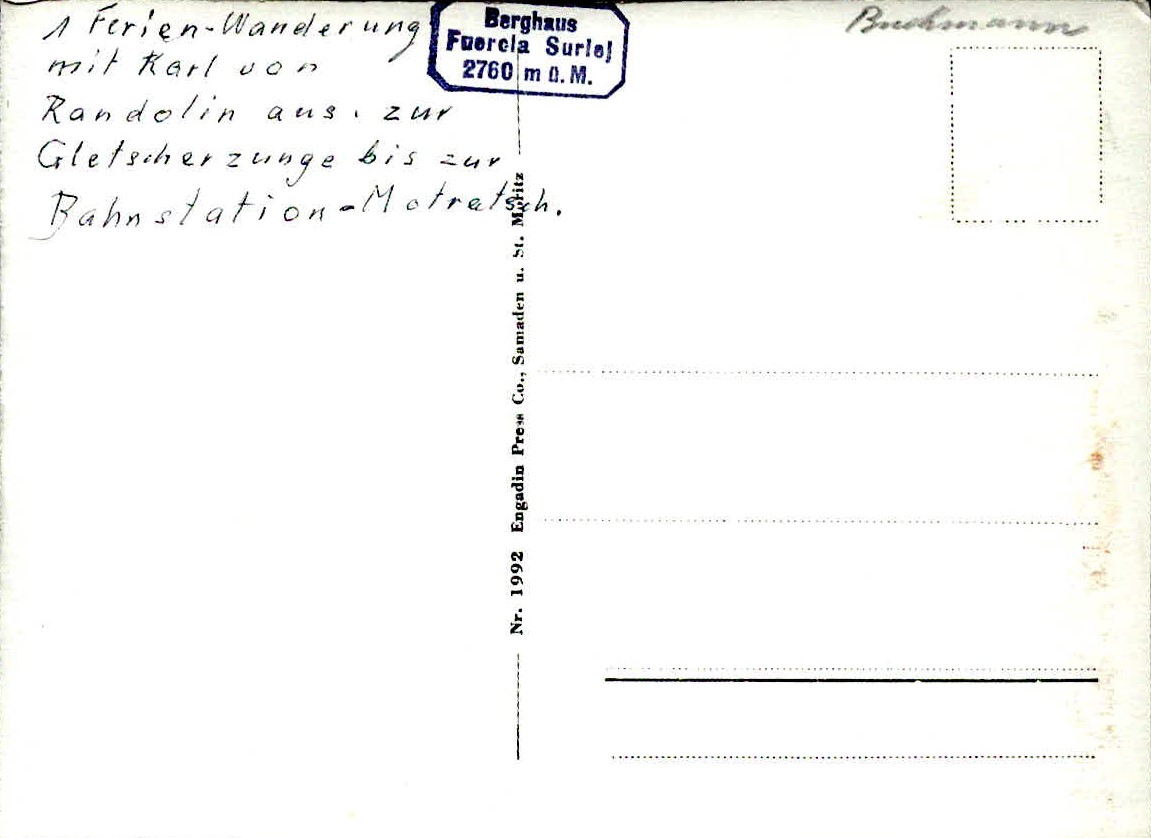 1 Ferien-Wanderung
mit Karl von
Randolin aus. zur
Gletscherzunge bis zur
Bahnstation-Motratsch.
Berghaus
Fuorcla Surlej
2760 m ü. M.
Buchmann
Nr. 1992 Engadin Press Co., Samaden u. St. Moritz